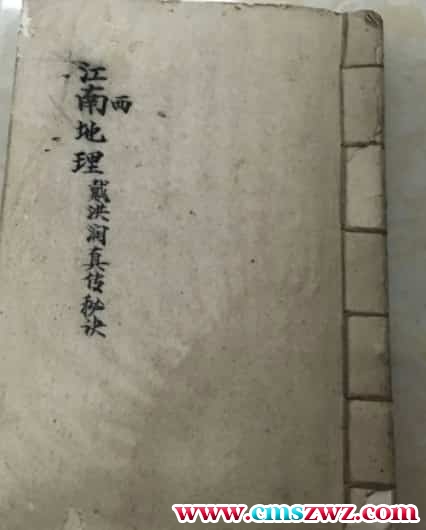 江南地理戴洪润真传秘诀
西
www.cmszwz.com